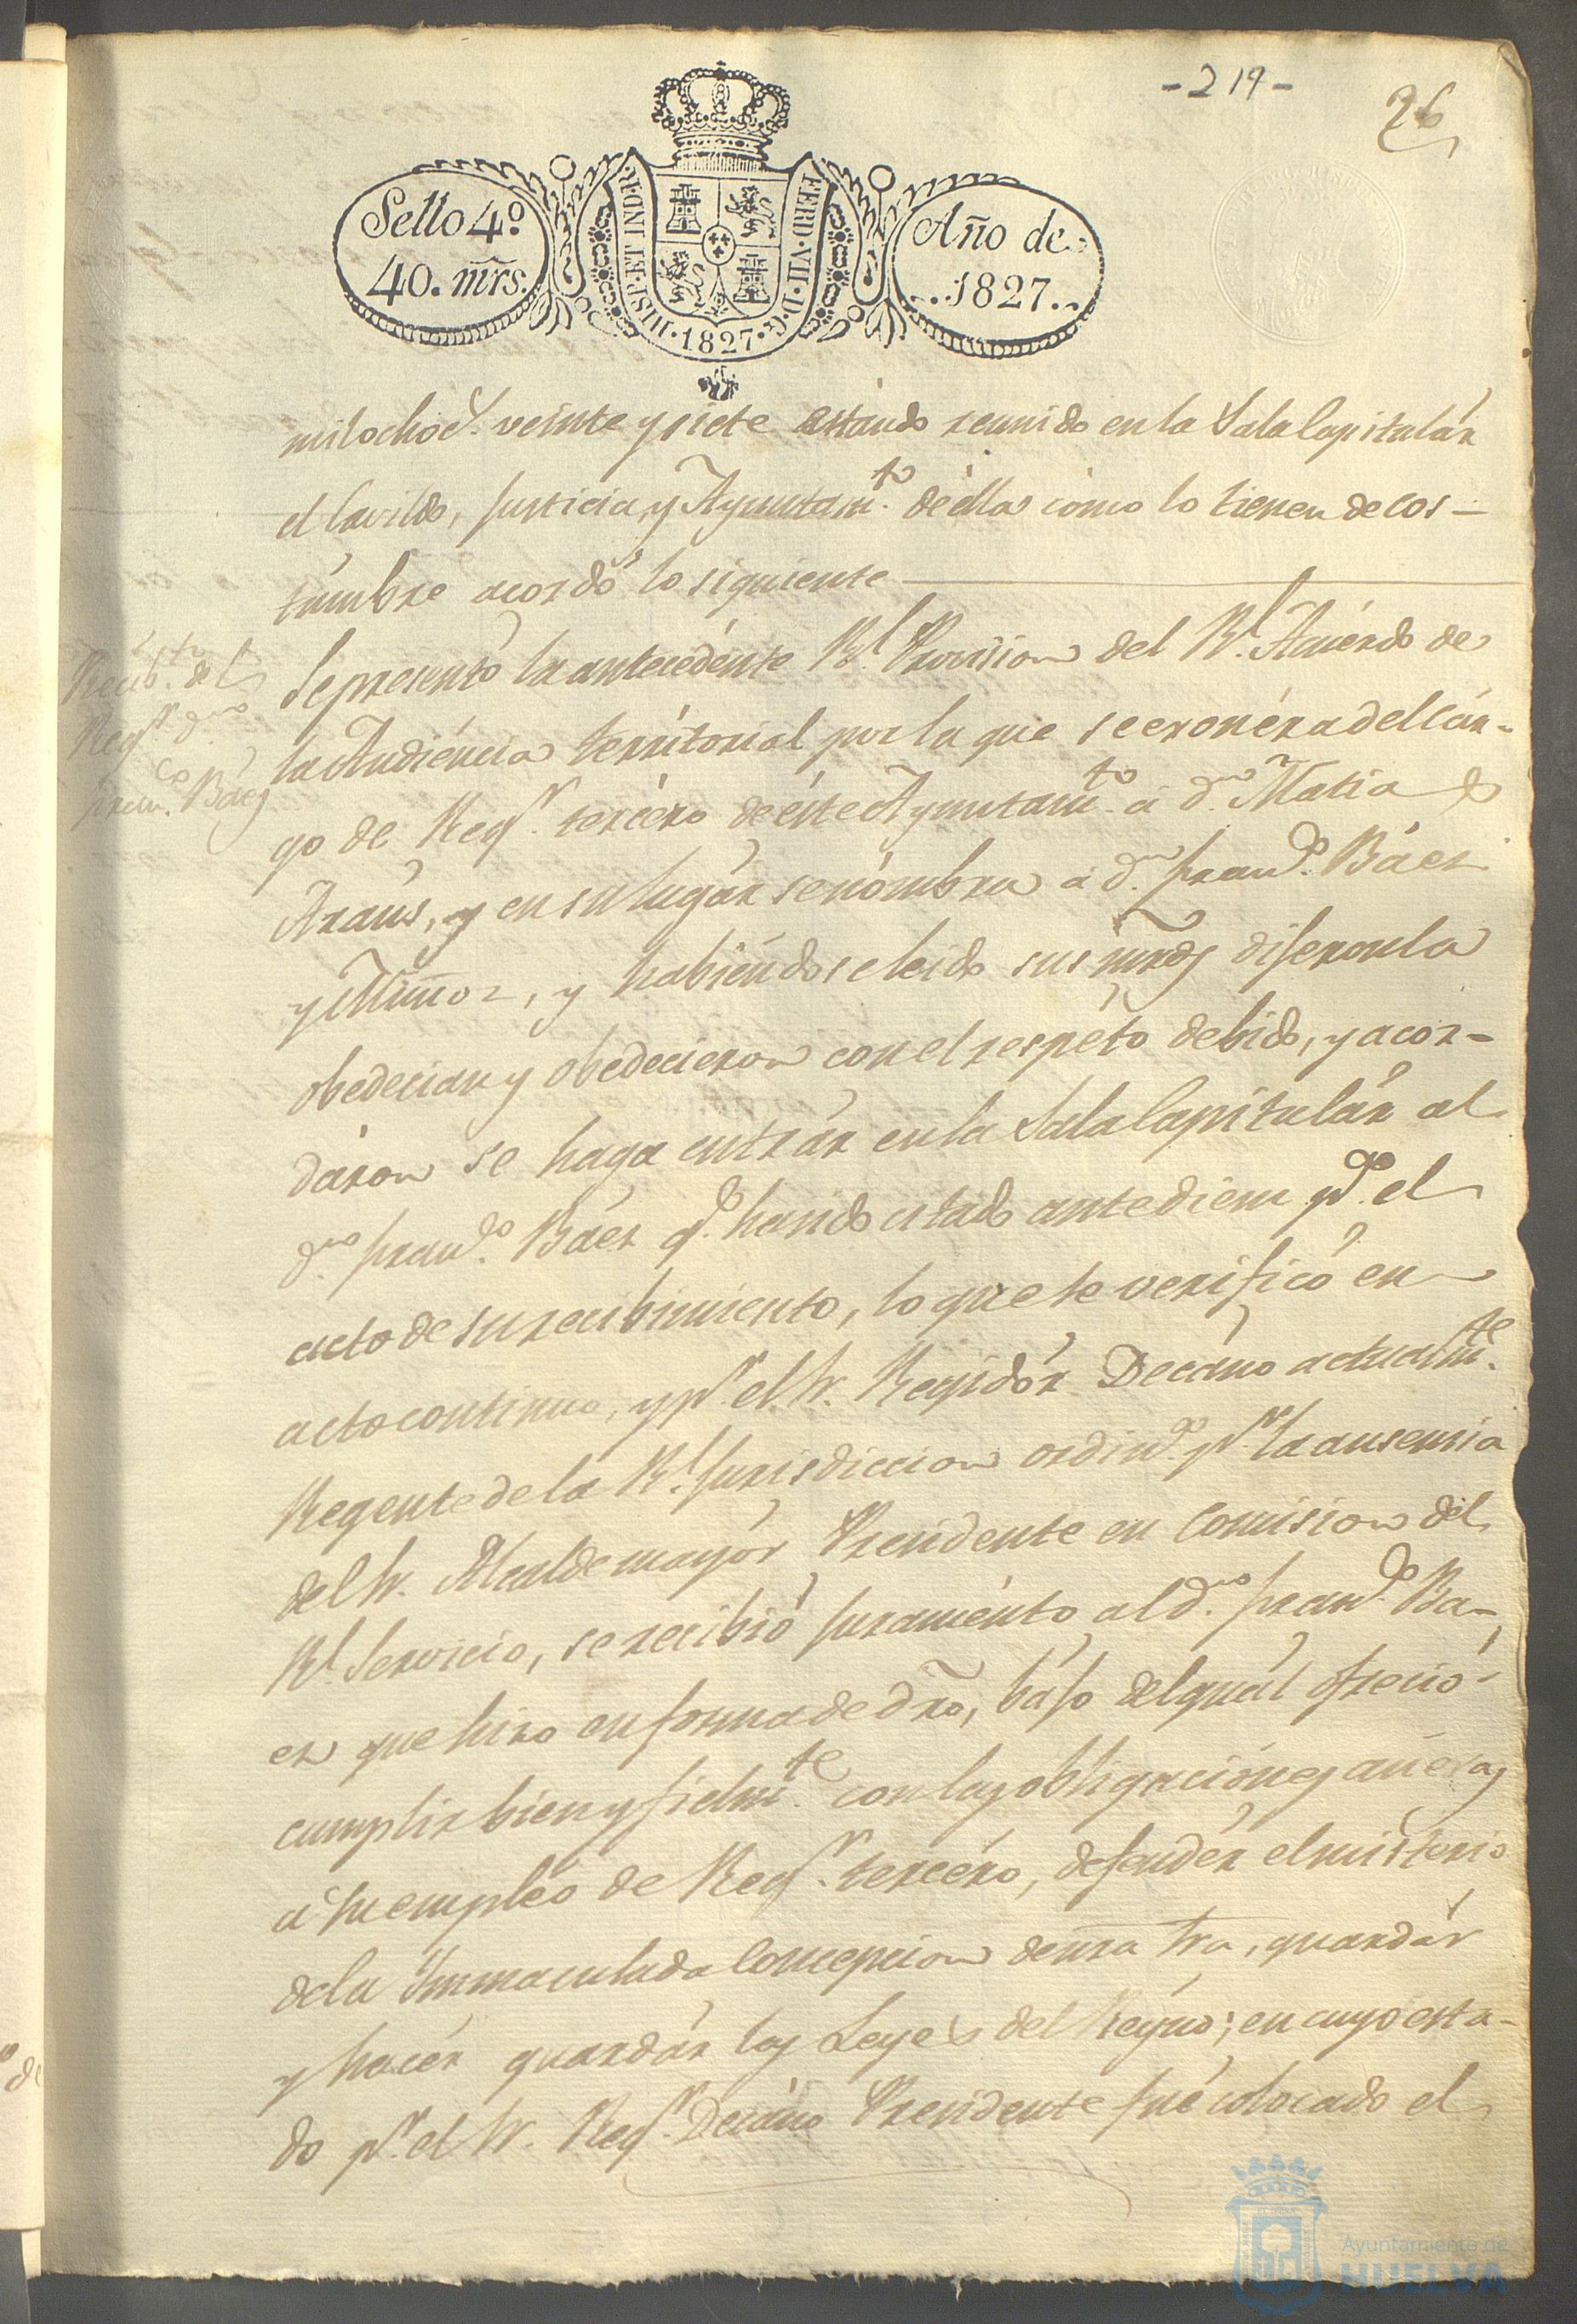 -219-
26
Sello 4º
40. mrs.
HISP. ET IND. R. FERD. VII. D. G. 1827
Año de
1827.
mil ochoc.s veinte y siete estando reunido en la Sala Capitulár
el Cavildo, Justicia, y Ayuntam.to de ella como lo tienen de cos-
tumbre acordó lo siguiente
Recib.to del
Reg.r d.n
Fran.co Báez
Se presentó la antecedente R.l Provision del R.l Acuerdo de
la Audiéncia territorial por la que se exonéra del cár-
go de Reg.r tercéro de éste Ayuntam.to á d.n Matias
Araús, y en su lugár se nómbra á d.n Fran.co Báez
y Muñoz, y habiéndose leido sus mrds dijeron la
obedecian y obedecieron con el respéto debido, y acor-
dáron se haga entrár en la Sala Capitulár al
d.n Fran.co Báez q.e ha sido citado ante diem p.a el
acto de su recibimiento, lo que se verificó en
acto continuo, y p.r el Sr. Regidór Decáno actualm.te
Regente de la R.l Jurisdiccion ordin.a p.r la ausencia
del Sr. Alcalde mayór Presidente en Comision del
R.l Servicio, se recibió juraménto al d.n Fran.co Bá-
ez que hizo en forma de dro, bájo del quál ofreció
cumplir bien y fielm.te con las obligaciónes anéxas
á su empléo de Reg.r tercéro, defendér el misterio
de la Immaculada Concepcion de nra Sra, guardár
y hacér guardár las Leyes del Réyno; en cuyo esta-
do p.r el Sr. Reg.r Decáno Presidente fué colocado el
Ayuntamiento de
HUELVA